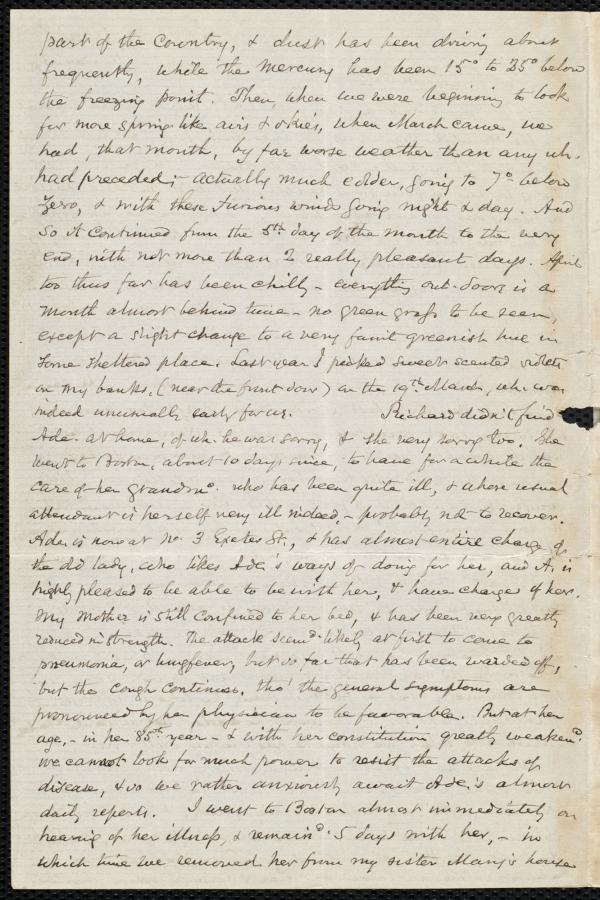 part of the Country, & dust has been driving about
frequently, while the Mercury has been 15° to 25° below
the freezing point. Then, when we were beginning to look
for more spring like airs & skies, when March came, we
had, that month, by far worse weather than any wh.
had preceded; - actually much colder, going to 7° below
Zero, & with these furious winds going night & day. And
so it continued from the 5th day of the month to the very
end, with not more than 2 really pleasant days. April
too thus far has been chilly - everything out-doors is a
month almost behind time - no green grass to be seen,
except a slight change to a very faint greenish hue in
some sheltered place. Last year I picked sweet scented violets
on my banks, (near the front door) on the 19th March, wh. was
indeed unusually early for us. Richard didn't find
Ade. at home, of wh. he was sorry, & she very sorry too. She
went to Boston, about 10 days since, to have for a while the
care of her grandmo. who has been quite ill, & whose usual
attendant is herself very ill indeed, - probably not to recover.
Ade. is now at No. 3 Exeter St., & has almost entire charge of
the old lady, who likes Ade.'s ways of doing for her, and A. is
highly pleased to be able to be with her, & have charge of her.
My Mother is still confined to her bed, & has been very greatly
reduced in strength. The attack seemd likely at first to come to
pneumonia, or lung fever, but so far that has been warded off,
but the cough continues, tho' the general symptoms are
pronounced by her physician to be favorable. But at her
age, - in her 85th year - & with her constitution greatly weakend.
we cannot look for much power to resist the attacks of
disease, & so we rather anxiously await Ade.'s almost
daily reports. I went to Boston almost immediately on
hearing of her illness, & remaind 5 days with her, - in
which time we removed her from my sister Mary's house